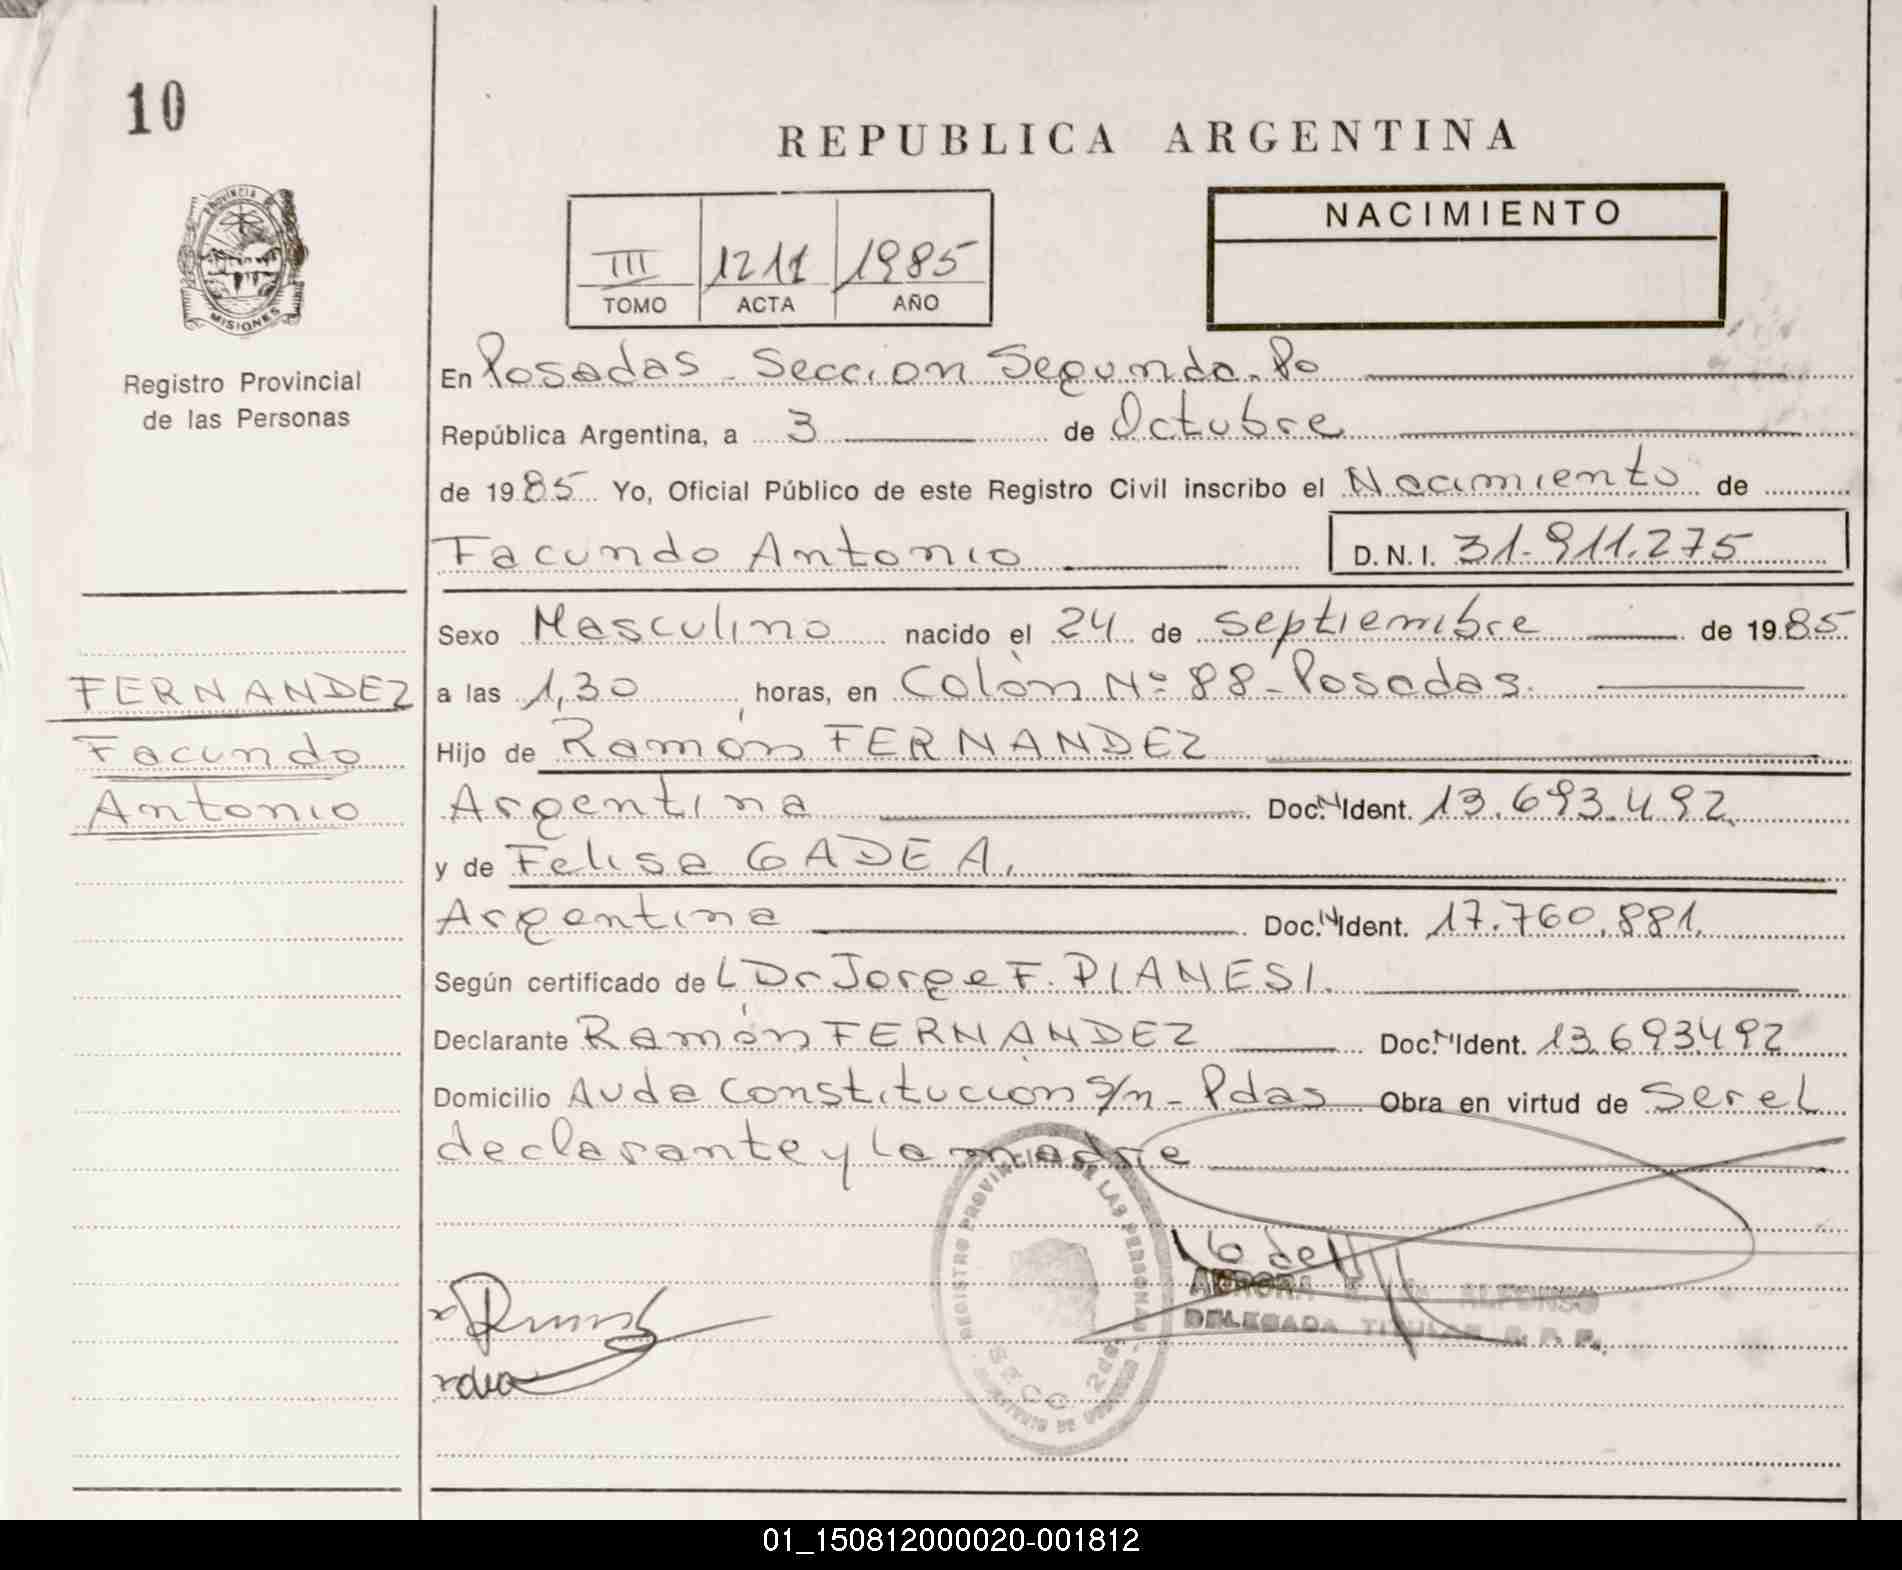 10
REPUBLICA ARGENTINA
PROVINCIA
MISIONES
Registro Provincial
de las Personas
III 1211 1985
TOMO ACTA AÑO
NACIMIENTO
En Posadas - Seccion Segunda. Po
República Argentina, a 3 de Octubre
de 1985 Yo, Oficial Público de este Registro Civil inscribo el Nacimiento de
Facundo Antonio D.N.I. 31.911.275
Sexo Masculino nacido el 24 de septiembre de 1985
a las 1,30 horas, en Colón Nº 88 - Posadas.
Hijo de Ramón FERNANDEZ
Argentina Doc. N Ident. 13.693.492
y de Felisa GADEA.
Argentina Doc. N Ident. 17.760.881.
Según certificado de L Dr Jorge F. PIANESI.
Declarante Ramón FERNANDEZ Doc. N Ident. 13.693492
Domicilio Avda Constitución s/n - Pdas Obra en virtud de ser el
declarante y la madre
FERNANDEZ
Facundo
Antonio
REGISTRO PROVINCIAL DE LAS PERSONAS
SECC 2da
MINISTERIO DE GOBIERNO
AURORA ALFONSO
DELEGADA TITULAR R. P. P.
01_150812000020-001812